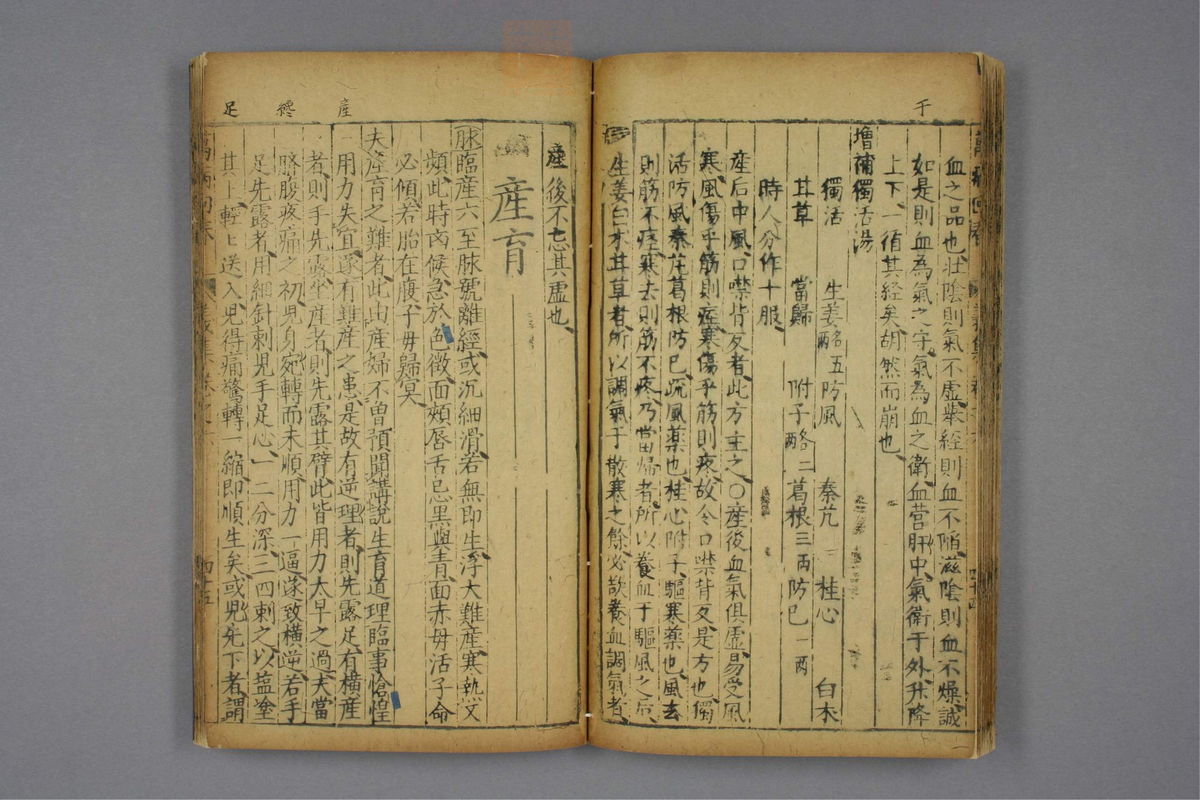 血之品也壮陰則氣不虛舉經則血不陥滋陰則血不燥誠
如是則血為氣之守氣為血之衛血营肝中氣衛于外升降
上下一循其経矣胡然而崩也
増補獨活湯
獨活 生姜各五兩 防風 秦艽 桂心 白朮
甘草 當歸 附子各二兩 葛根三兩 防已一兩
時人分作十服
産后中風口噤背反者此方主之〇産後血氣俱虛易受風
寒風傷乎筋則痙寒傷乎筋則疼故令口噤背反是方也獨
活防風秦艽葛根防已疏風薬也桂心附子驅寒薬也風去
則筋不痙寒去則筋不疼乃當帰者所以養血于驅風之后
生姜白朮甘草者所以調氣于散寒之餘必故養血調氣者
千
産後不忘其虛也
産育
脉臨産六至脉號離經或沉細滑若無即生浮大難産寒熱又
頻此時㐫候急於色徴面頰唇舌忌黒與青面赤毋活子命
必傾若胎在腹子毋歸冥
夫産育之難者此由産婦不曽預聞講說生育道理臨事愴惶
用力失宜遂有難産之患是故有逆理者則先露足有横産
者則手先露坐産者則先露其臂此皆用力太早之過夫當
臍腹疼痛之初児身宛轉而未順用力一逼遂致横逆若手
足先露者用細針刺児手足心一二分深三四刺之以盐塗
其上輕〻送入児得痛驚轉一縮即順生矣或児先下者謂
産
終
足
四十五